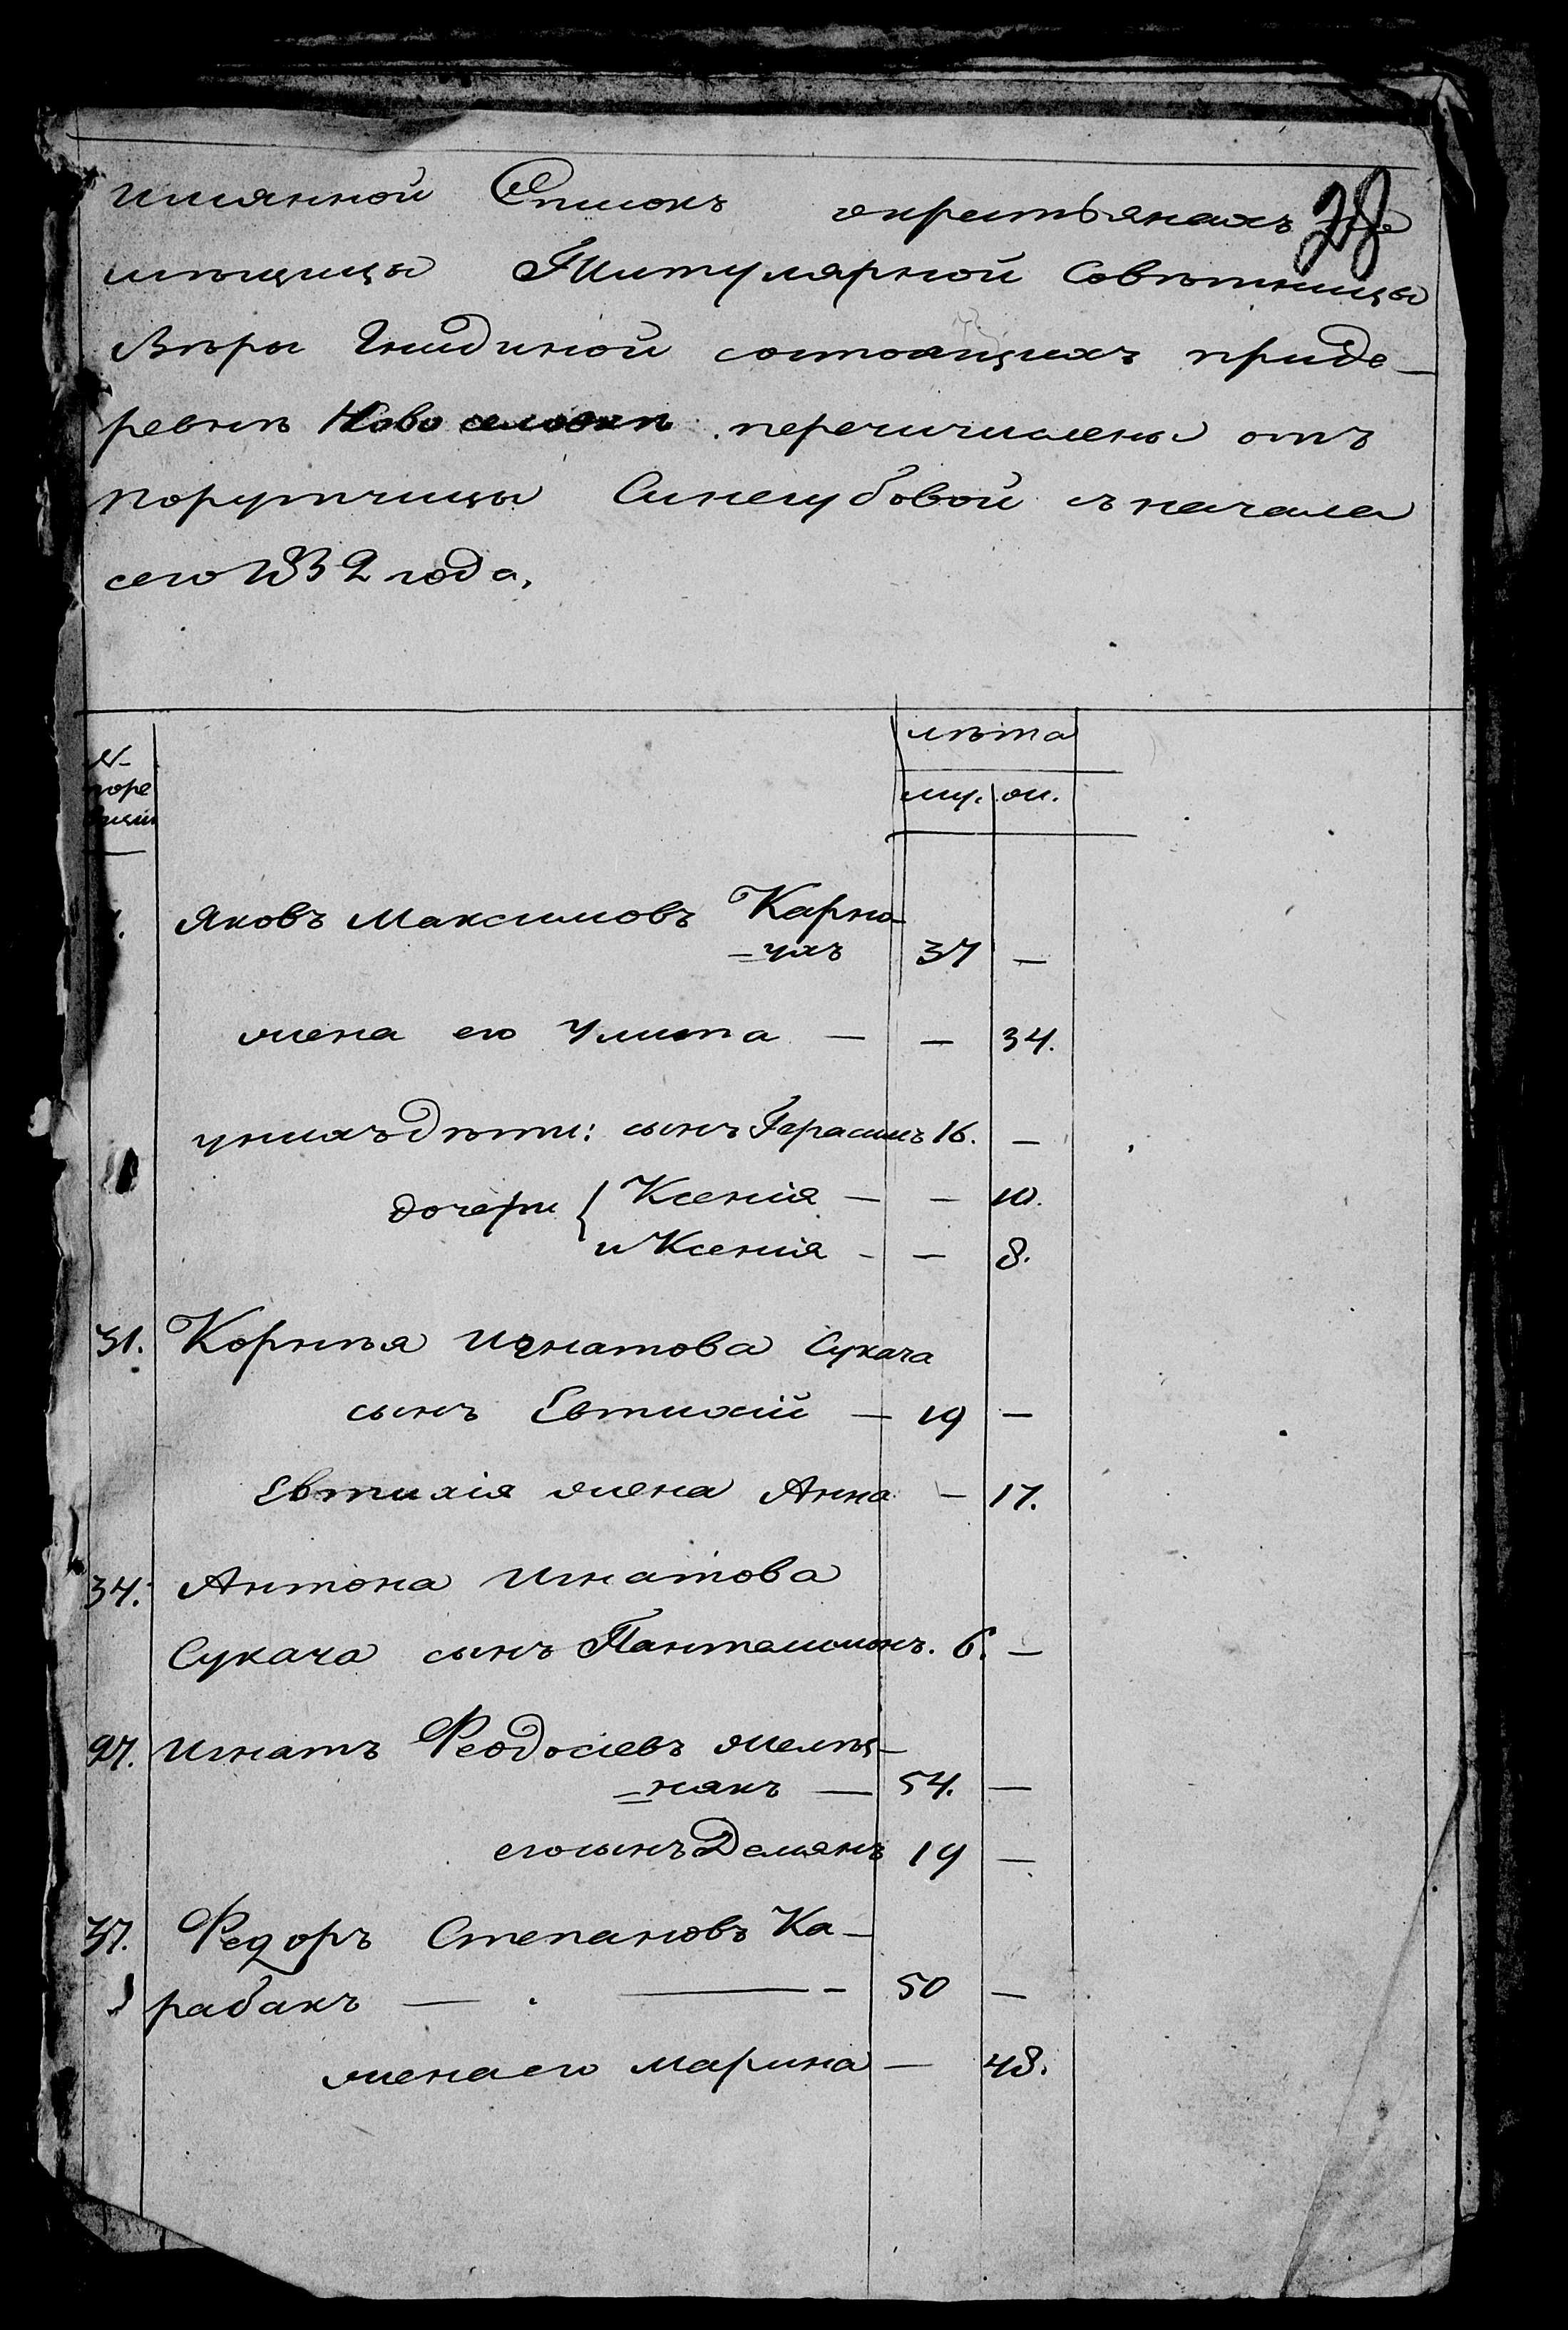 имянной Списокъ окрестьянахъ по 28
мѣщицы Титулярной Совѣтницы
Вѣры Гнидиной состоящихъ приде-
ревнѣ Ново селовкѣ перечислены отъ
порутчицы Синегубовой сначала
сего 1832 года,
лѣта
№ поре визіи
му. ж.
Яковъ Максимовъ Карно-
=ухъ 37 —
жена его Улита — — 34.
унихъ дѣти: сынъ Герасимъ 16. —
дочери { Ксенія — — 10.
и Ксенія - — 8.
31. Корнѣя Игнатова Сукача
сынъ Евтихій — 19 —
Евтихія жена Анна — 17.
34. Антона Игнатова
Сукача сынъ Пантелимонъ. 6. —
97. Игнатъ Феодосіевъ
=някъ — 54. —
его сынъ Демянъ 19 —
37. Федоръ Степановъ Ка-
рабакъ — . — - 50 —
жена его Марина — 48.